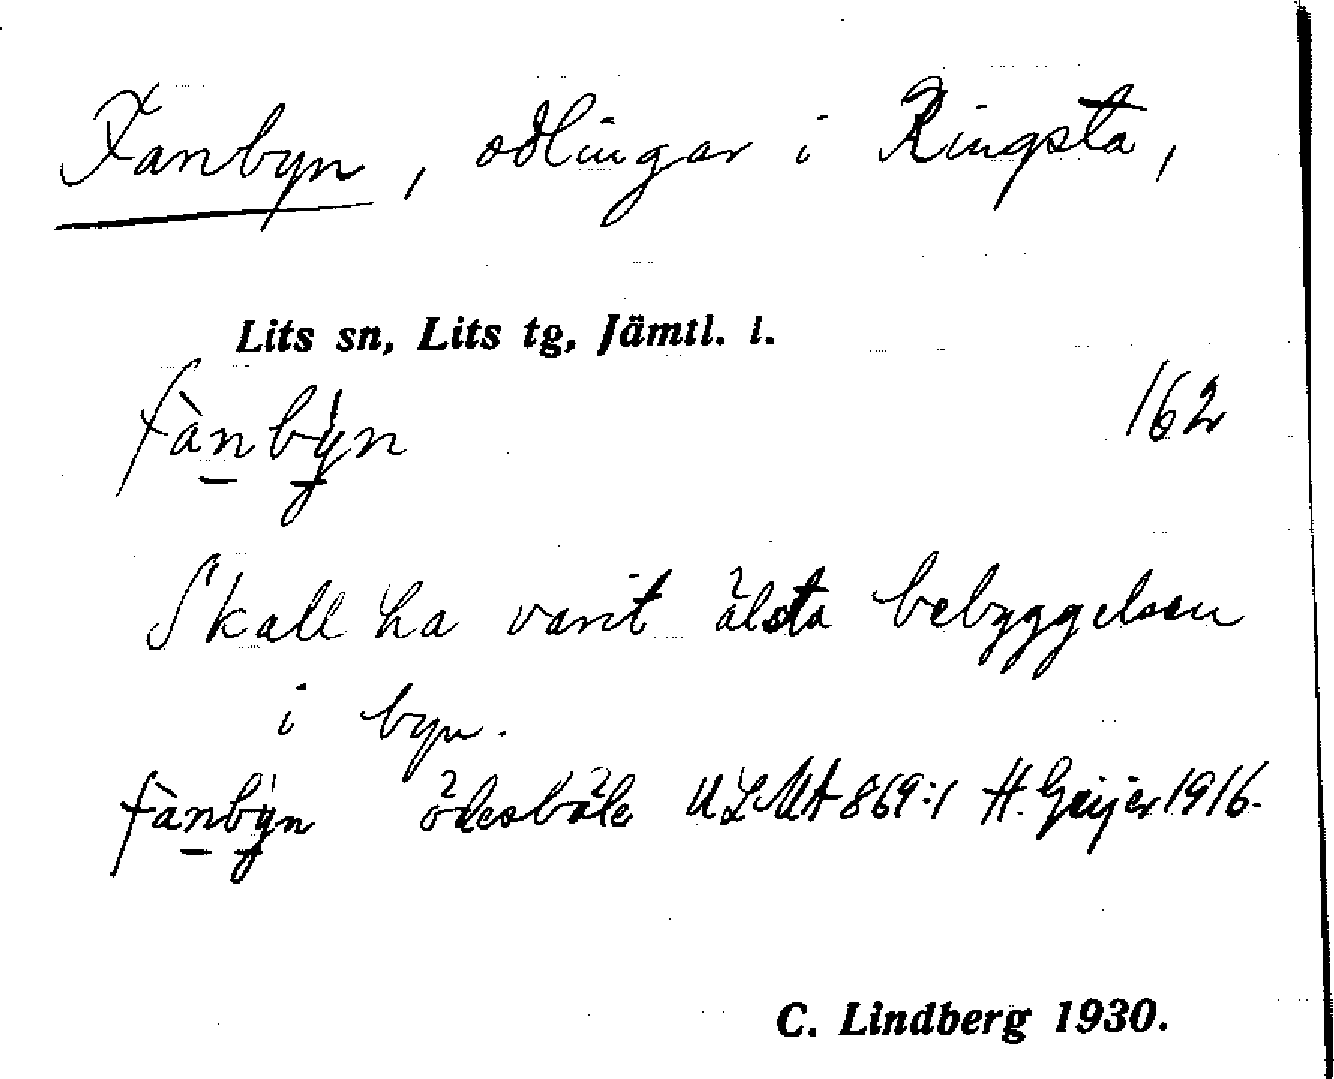 Fanbyn, odlingar i Ringsta,
Lits sn, Lits tg, Jämtl. l.
fànby̍n 162
Skall ha varit älsta bebyggelsen
i byn.
fànby̍n ödesböle ULMA 869:1 H. Geijer 1916.
C. Lindberg 1930.